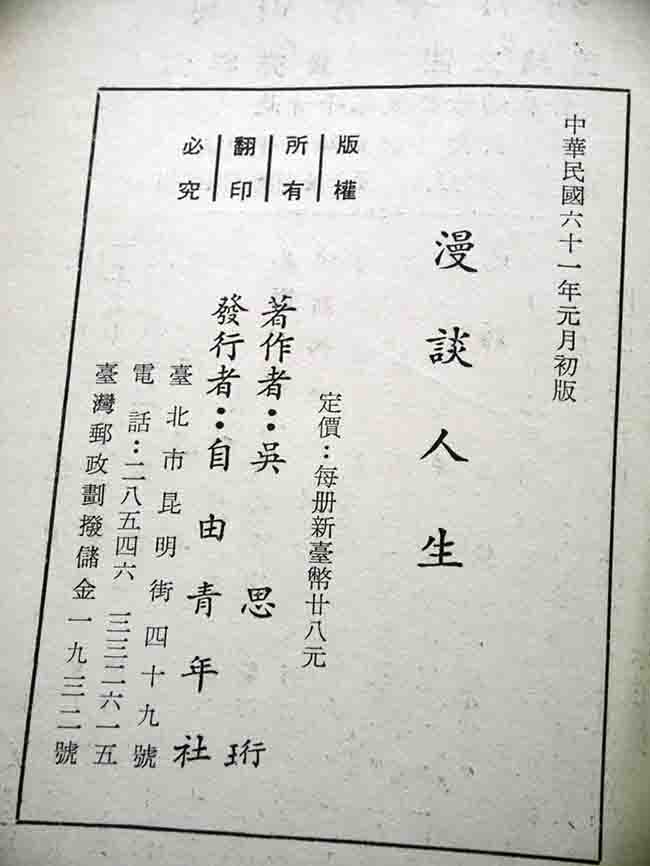 中華民國六十一年元月初版
漫談人生
定價：每册新臺幣廿八元
版權
所有
翻印
必究
著作者：吳思珩
發行者：自由青年社
臺北市昆明街四十九號
電話：二八五四六 三三二六一五
臺灣郵政劃撥儲金一九三二號